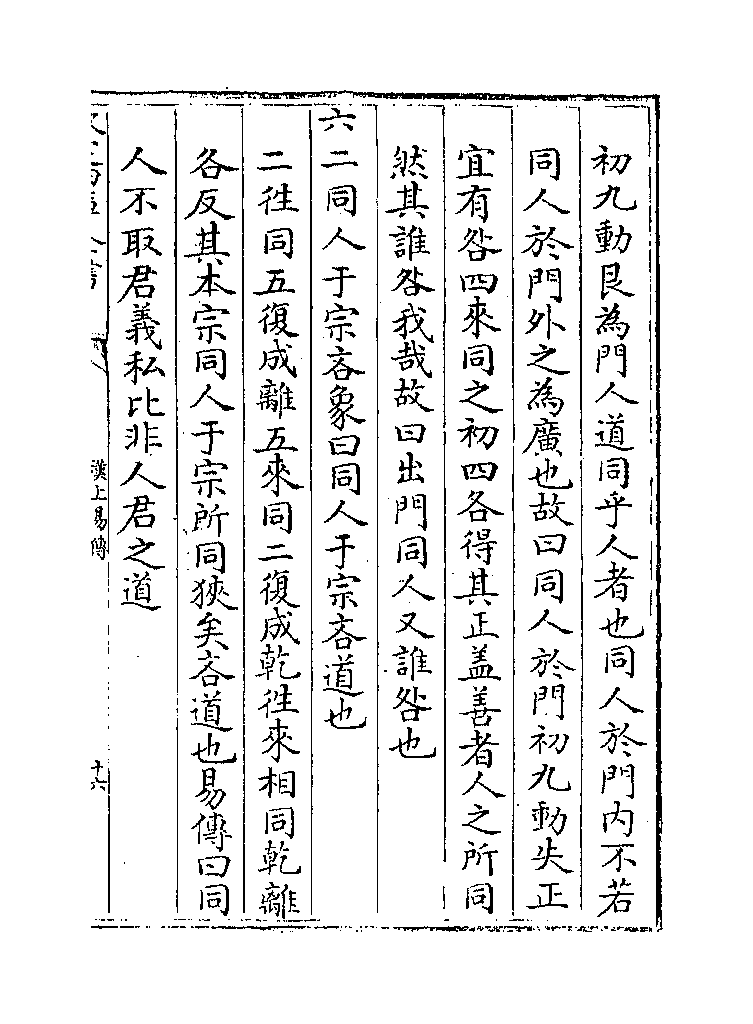 初九動艮為門人道同乎人者也同人於門内不若
同人於門外之為廣也故曰同人於門初九動失正
宜有咎四來同之初四各得其正盖善者人之所同
然其誰咎我哉故曰出門同人又誰咎也
六二同人于宗吝象曰同人于宗吝道也
二徃同五復成離五來同二復成乾徃來相同乾離
各反其本宗同人于宗所同狹矣吝道也易傳曰同
人不取君義私比非人君之道
漢上易傳
十六